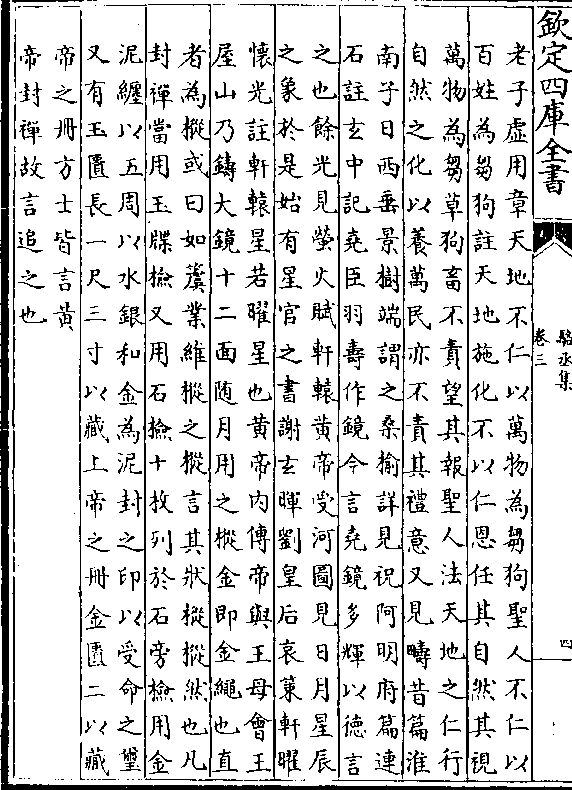 欽定四庫全書
駱丞集
卷三
四
老子虚用章天地不仁以萬物為芻狗聖人不仁以
百姓為芻狗註天地施化不以仁恩任其自然其視
萬物為芻草狗畜不責望其報聖人法天地之仁行
自然之化以養萬民亦不責其禮意又見疇昔篇淮
南子日西垂景樹端謂之桑榆詳見祝阿明府篇連
石註玄中記堯臣羽壽作鏡今言堯鏡多輝以徳言
之也餘光見螢火賦軒轅黄帝受河圖見日月星辰
之象於是始有星官之書謝玄暉劉皇后哀䇿軒曜
懷光註軒轅星若曜星也黄帝内傳帝與王母會王
屋山乃鑄大鏡十二面随月用之樅金即金繩也直
者為樅或曰如虡業維樅之樅言其狀樅樅然也凡
封禪當用玉牒檢又用石檢十枚列於石旁檢用金
泥纏以五周以水銀和金為泥封之印以受命之璽
又有玉匱長一尺三寸以藏上帝之册金匱二以藏
帝之册方士皆言黄
帝封禪故言追之也